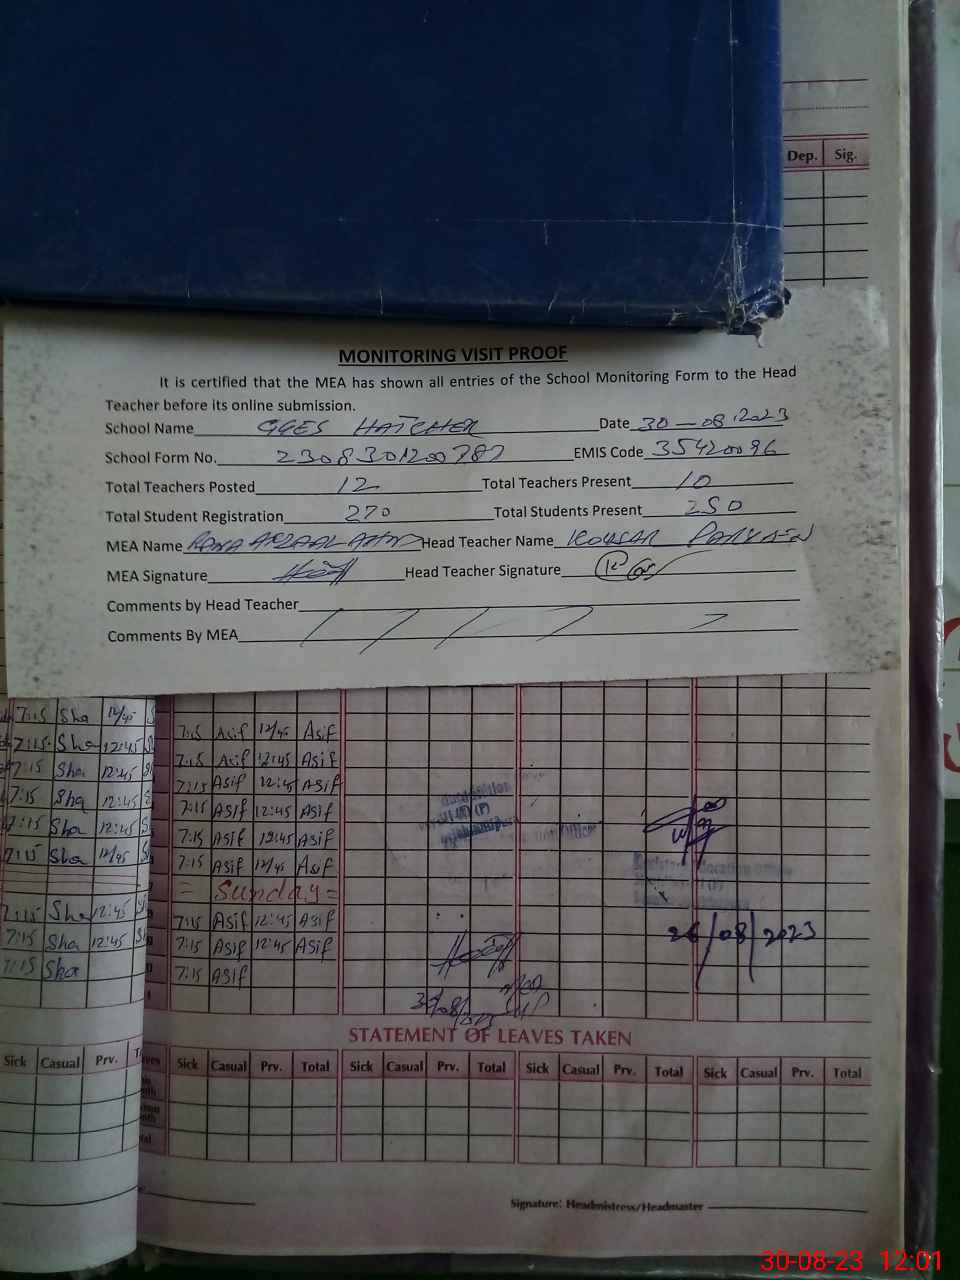 Dep. Sig.
MONITORING VISIT PROOF
It is certified that the MEA has shown all entries of the School Monitoring Form to the Head
Teacher before its online submission.
School Name GGES HATCHER Date 30-08-2023
School Form No. 230830120078 EMIS Code 35420096
Total Teachers Posted 12 Total Teachers Present 10
Total Student Registration 270 Total Students Present 250
MEA Name RANA AFZAAL Head Teacher Name KOUSAR PARVEEN
MEA Signature Head Teacher Signature
Comments by Head Teacher
Comments By MEA
7:15 Sha 12/45 7:15 Asif 12/45 Asif
7:15 Sha 12:45 7:15 Asif 12:45 Asif
7:15 Sha 12:45 7:15 Asif 12:45 ASif
7:15 Sha 12:45 7:15 ASif 12:45 Asif
7:15 Sha 12:45 7:15 ASif 12:45 ASif
7:15 Sha 12/45 7:15 ASif 12/45 Asif
= Sunday =
7:15 Sha 12:45 7:15 ASif 12:45 ASif
7:15 Sha 12:45 7:15 ASif 12:45 ASif
7:15 Sha 7:15 ASif
26/08/2023
STATEMENT OF LEAVES TAKEN
Sick Casual Prv. Sick Casual Prv. Total Sick Casual Prv. Total Sick Casual Prv. Total Sick Casual Prv. Total
Signature: Headmistress/Headmaster
30-08-23 12:01